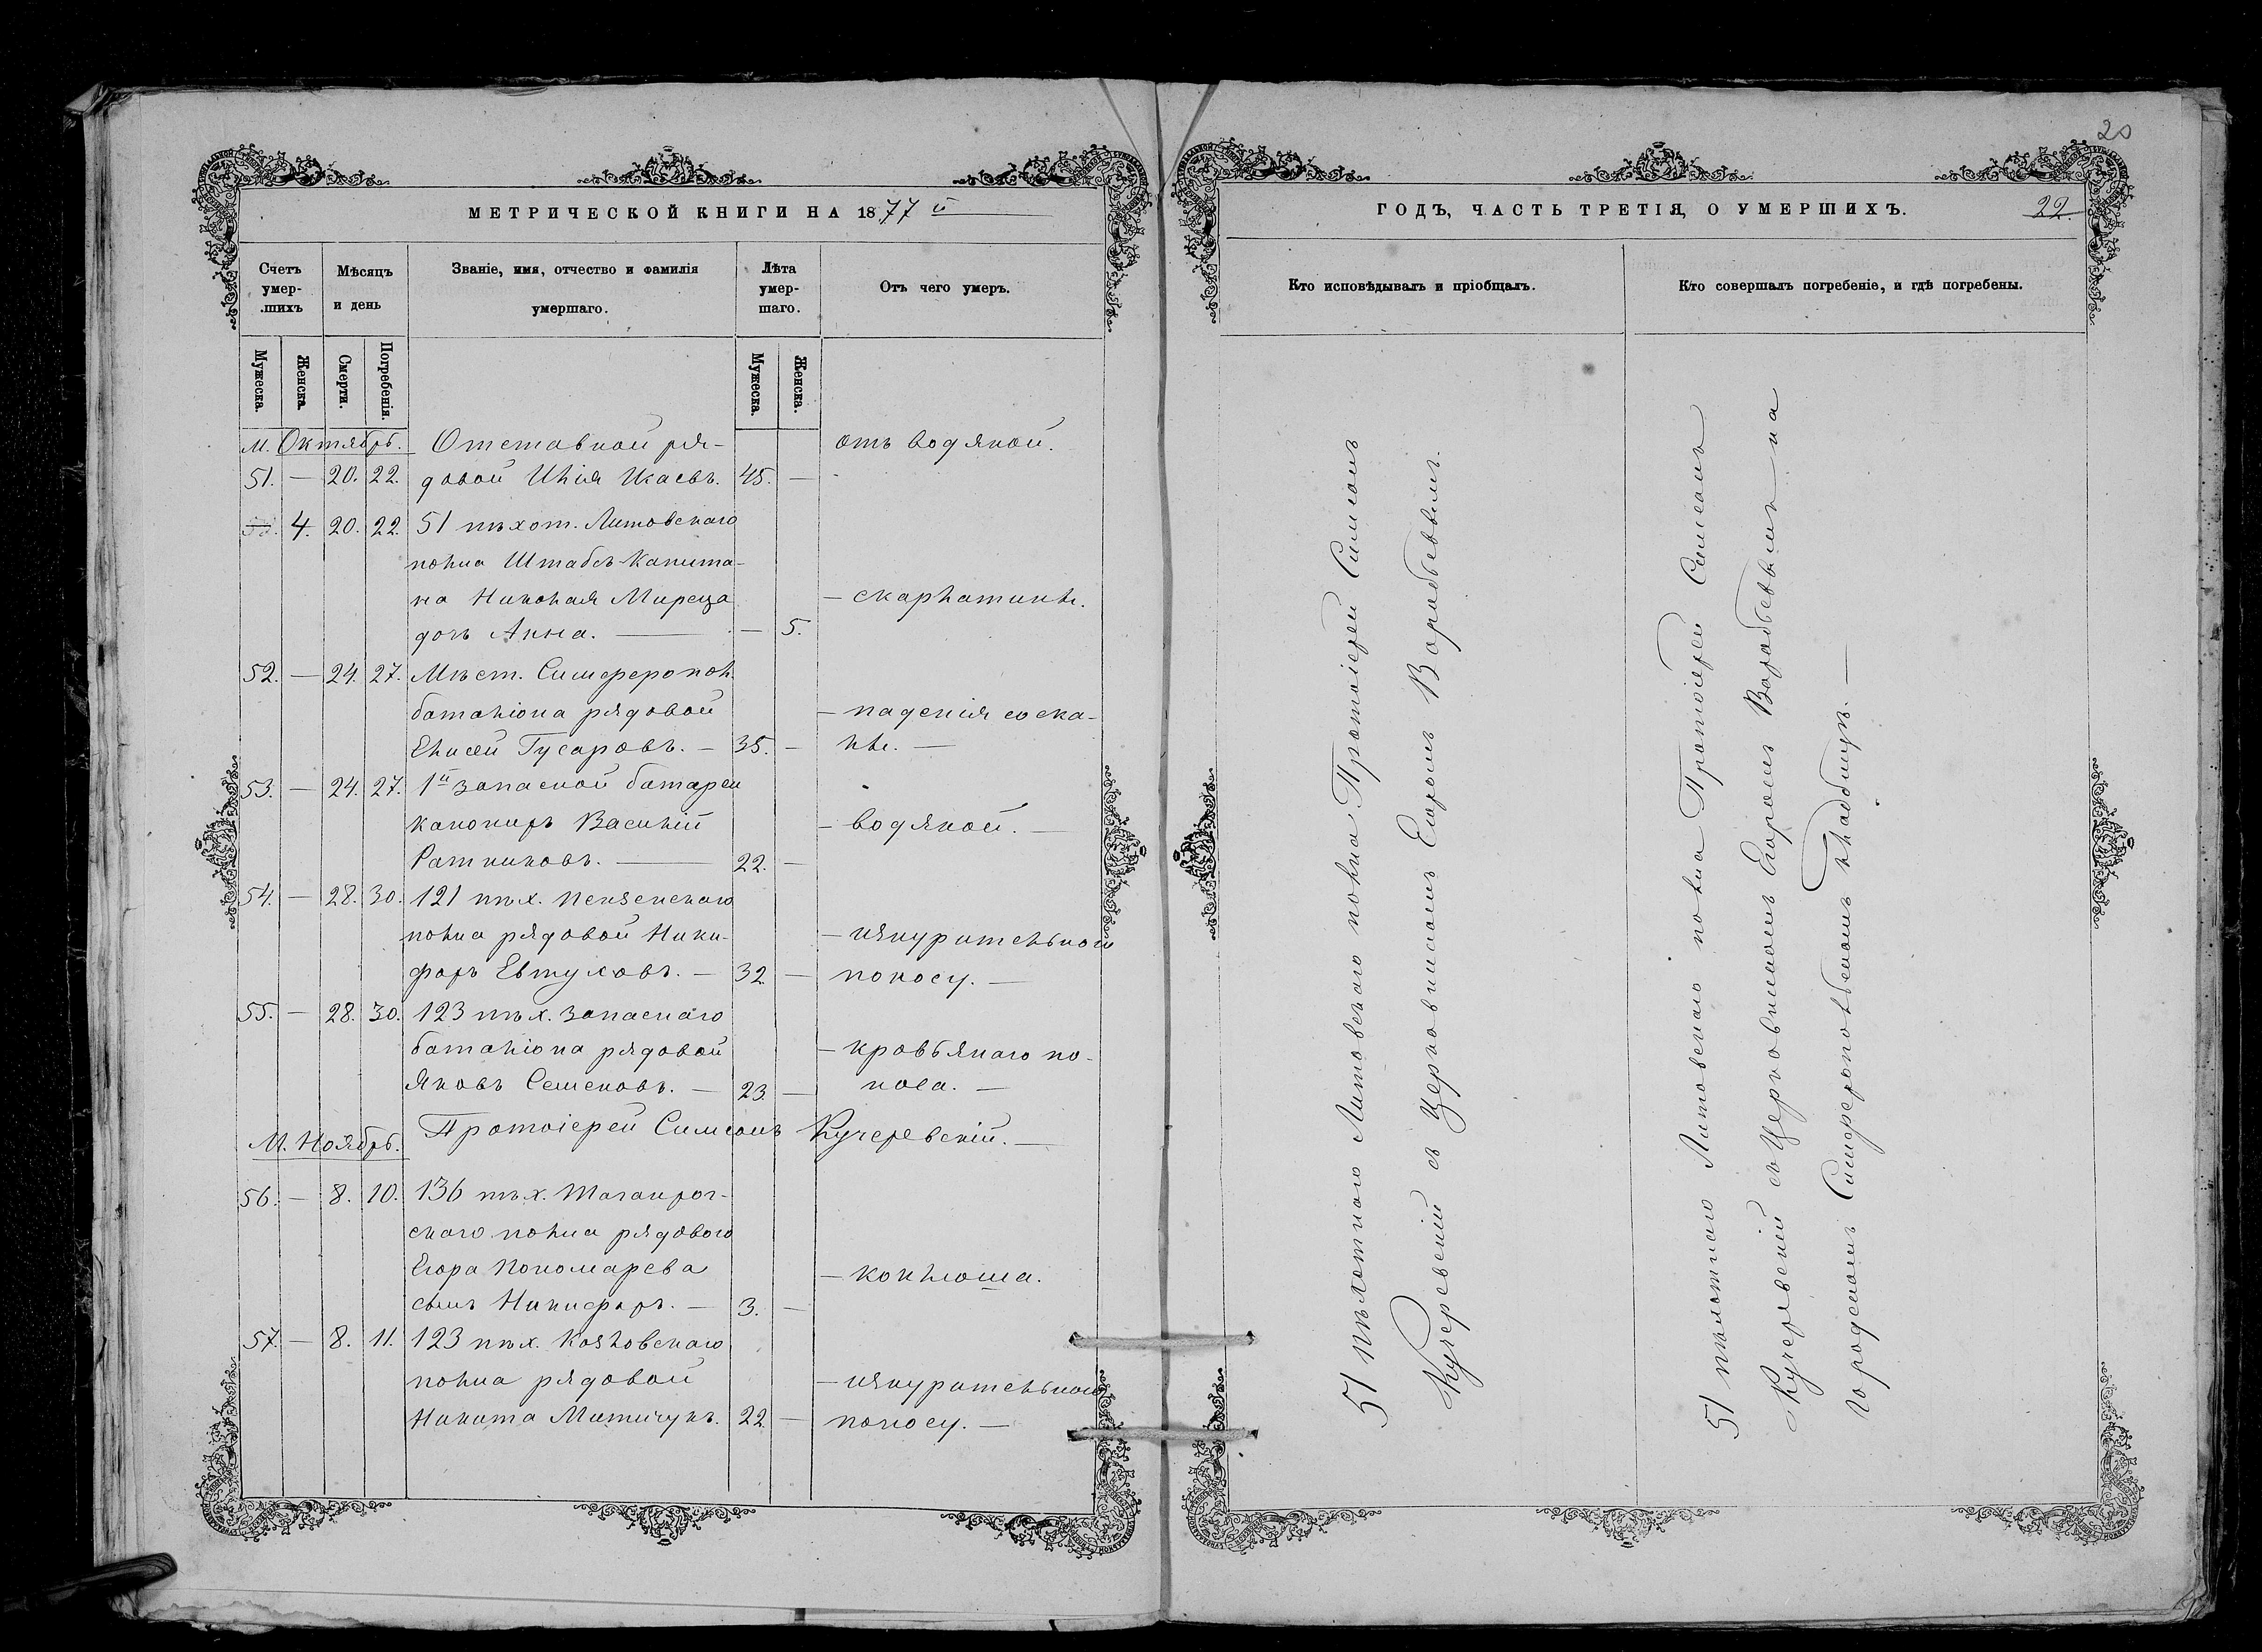 20
МЕТРИЧЕСКОЙ КНИГИ НА 1877й
Счетъ умер-.шихъ
Мѣсяцъ и день
Званіе, имя, отчество и фамилія умершаго.
Лѣта умер-шаго.
Отъ чего умеръ.
Мужеска.
Женска.
Смерти.
Погребенія.
Мужеска.
Женска.
М. Октябрь. Отставной ря- отъ водяной.
51. — 20. 22. довой Илія Исаевъ. 45. —
4. 20. 22. 51 пѣхот. Литовскаго
полка Штабсъ-Капита-
на Николая Миреца — скарлатины.
дочь Анна. — — 5.
52. — 24. 27. Мѣст. Симферопол.
баталіона рядовой — паденія со ска-
Елисей Гусаровъ. — 35. — лы. —
53. — 24. 27. 1й запасной батареи
канониръ Василій — водяной. —
Ратниковъ. — 22. —
54. — 28. 30. 121 пѣх. Пензенскаго
полка рядовой Ники- — изнурительного
форъ Евтуховъ. — 32. — поносу. —
55. — 28. 30. 123 пѣх. запаснаго
баталіона рядовой — кровянаго по-
Яковъ Семеновъ. — 23. — носа. —
Протоіерей Симеонъ Кучеревскій. —
М. Ноябрь.
56. — 8. 10. 136 пѣх. Таганрог-
скаго полка рядового
Егора Пономарева — коклюша.
сынъ Никифоръ. — 3. —
57. — 8. 11. 123 пѣх. Козловскаго
полка рядовой — изнурительного
Никита Митичукъ. 22. — поносу. —
ГОДЪ, ЧАСТЬ ТРЕТІЯ, О УМЕРШИХЪ.
22.
Кто исповѣдывалъ и пріобщалъ.
Кто совершалъ погребеніе, и гдѣ погребены.
51 пѣхотнаго Литовскаго полка Протоіерей Симеонъ
Кучеревскій съ Церковникомъ Егоромъ Воробьевымъ.
51 пѣхотнаго Литовскаго полка Протоіерей Симеонъ
Кучеревскій съ Церковникомъ Егоромъ Воробьевымъ на
городскомъ Симферопольскомъ кладбищѣ. —